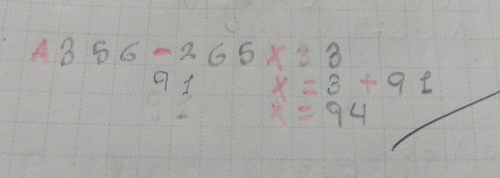 A 356 - 265 x = 3
91 x = 3 + 91
x = 94